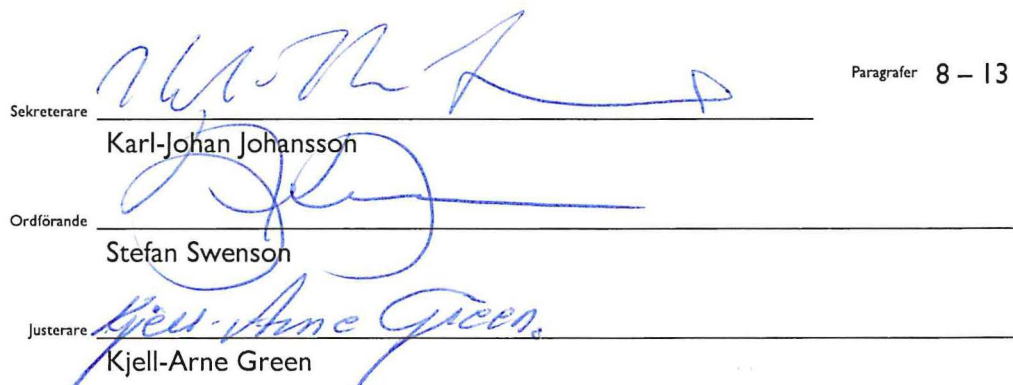 Sekreterare Paragrafer 8 – 13
Karl-Johan Johansson
Ordförande
Stefan Swenson
Justerare Kjell-Arne Green.
Kjell-Arne Green